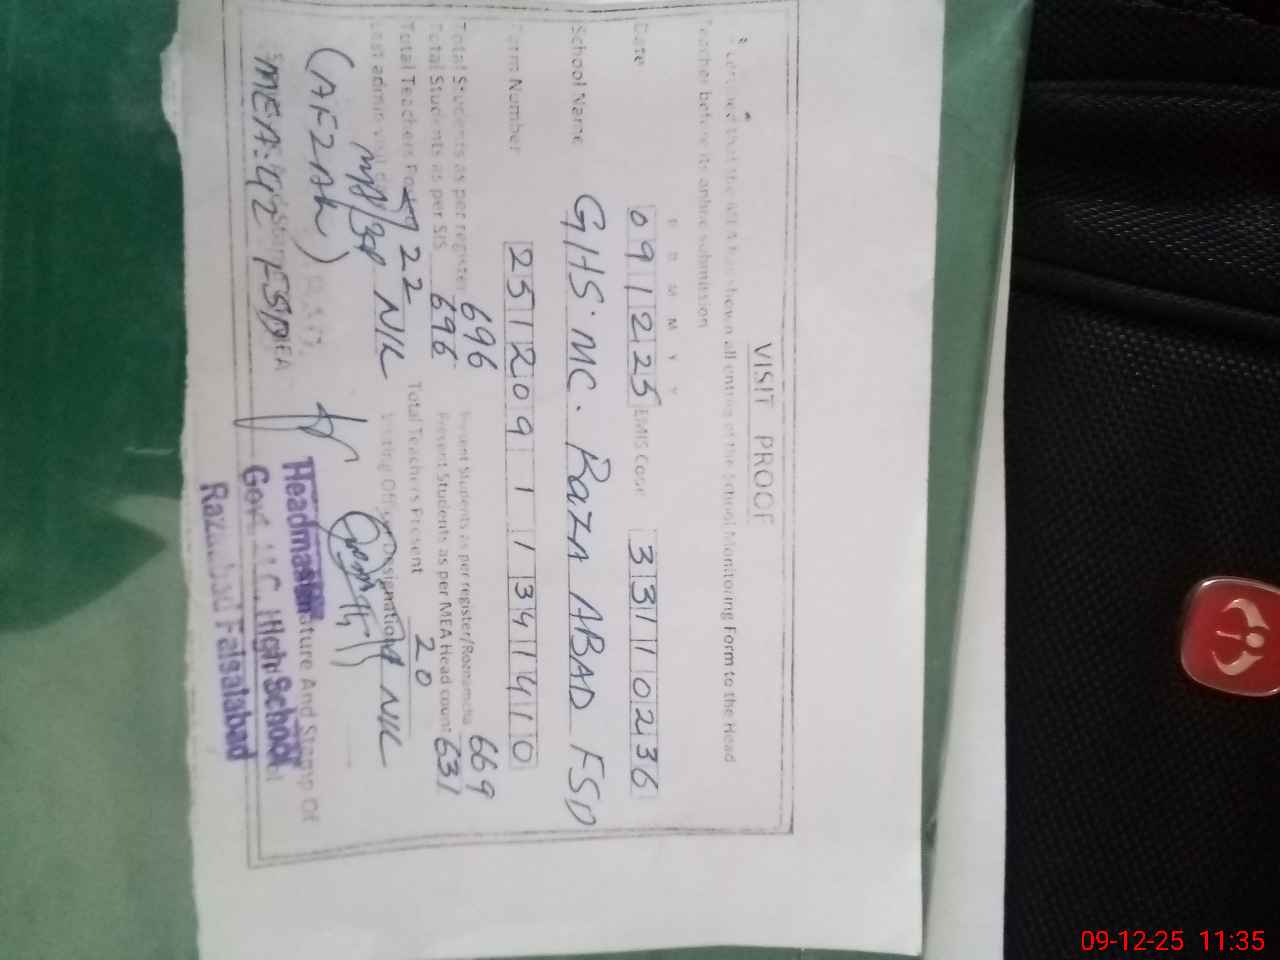 VISIT PROOF
certified that the MEA has shown all entries of the School Monitoring Form to the Head
Teacher before its online submission
D D M M Y Y
Date 091225 EMIS Code 33110236
School Name GHS. MC. RAZA ABAD FSD
Form Number 251209 1 1 34 14 10
Total Students as per register 696 Present Students as per register/Roznamcha 669
Total Students as per SIS 696 Present Students as per MEA Head count 631
Total Teachers Posted 22 Total Teachers Present 20
Last admin visit NIL Visiting Officer Designation NIL
(AFZAL)
MEA: 42 FSD
Signature And Stamp Of
Headmaster
Govt. M.C. High School
Razaabad Faisalabad
09-12-25 11:35